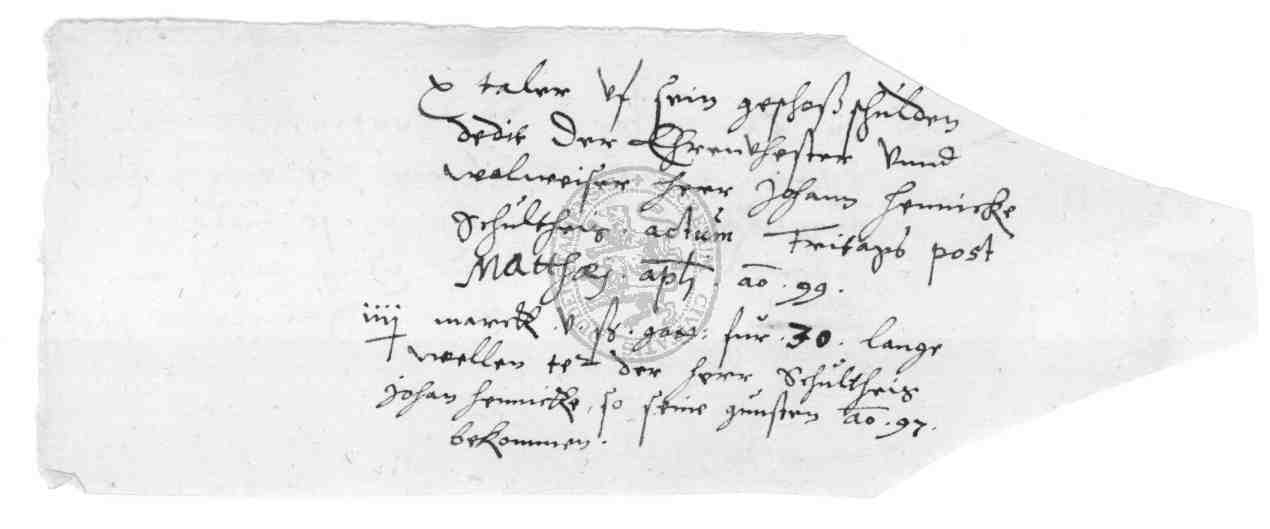 x taler vf sein geschoßschulden
dedit der Ehrenvhester vnnd
wolweiser herr Johann Hennicke
Schultheis. actum Freitags post
Matthæj. apli. ao. 99.
iiij marck. v. ß. für. 30. lange
wellen der herr Schultheis
Johan Hennicke, so seine gunsten ao. 97.
bekommen.